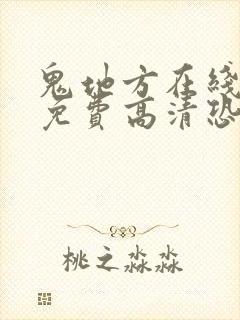 鬼地方在线
免費高清恐
桃之淼淼